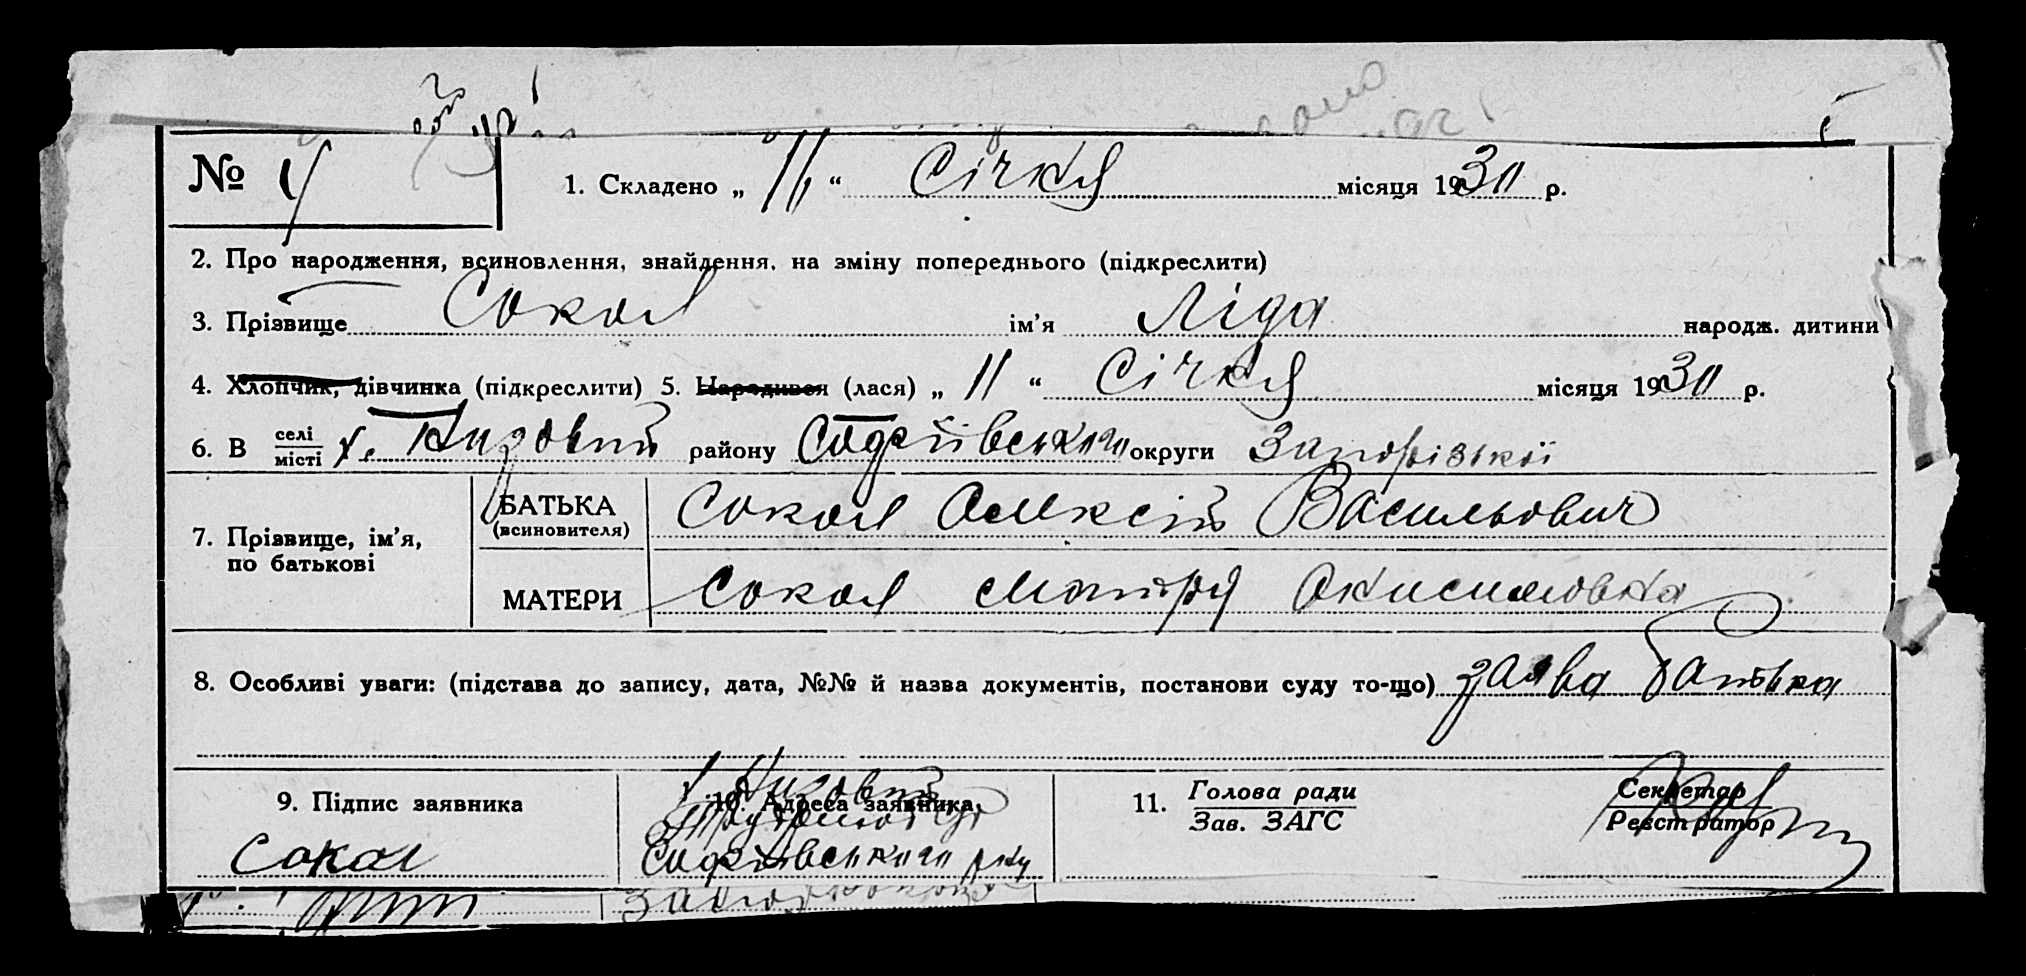 № 4 1. Складено „ 11 “ Січня місяця 1930 р.
2. Про народження, всиновлення, знайдення, на зміну попереднього (підкреслити)
3. Прізвище Сокол ім'я Ліда народж. дитини
4. Хлопчик, дівчинка (підкреслити) 5. Народився (лася) „ 11 “ Січня місяця 1930 р.
6. В селі/місті х. Низовий району Софіївського округи Запорізької
7. Прізвище, ім'я, по батькові
БАТЬКА (всиновителя) Сокол Олексій Васильович
МАТЕРИ Сокол Мотря Онисимовна
8. Особливі уваги: (підстава до запису, дата, №№ й назва документів, постанови суду то-що) заява батька
9. Підпис заявника
Сокол
10. Адреса заявника
х Низовий
Софіївського р-ну
11. Голова ради
Зав. ЗАГС
Секретар
Реєстратор